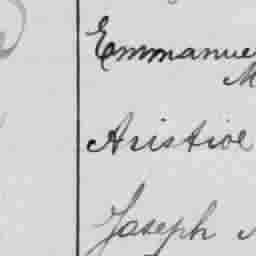 Emmanue
M
Aristide
Joseph